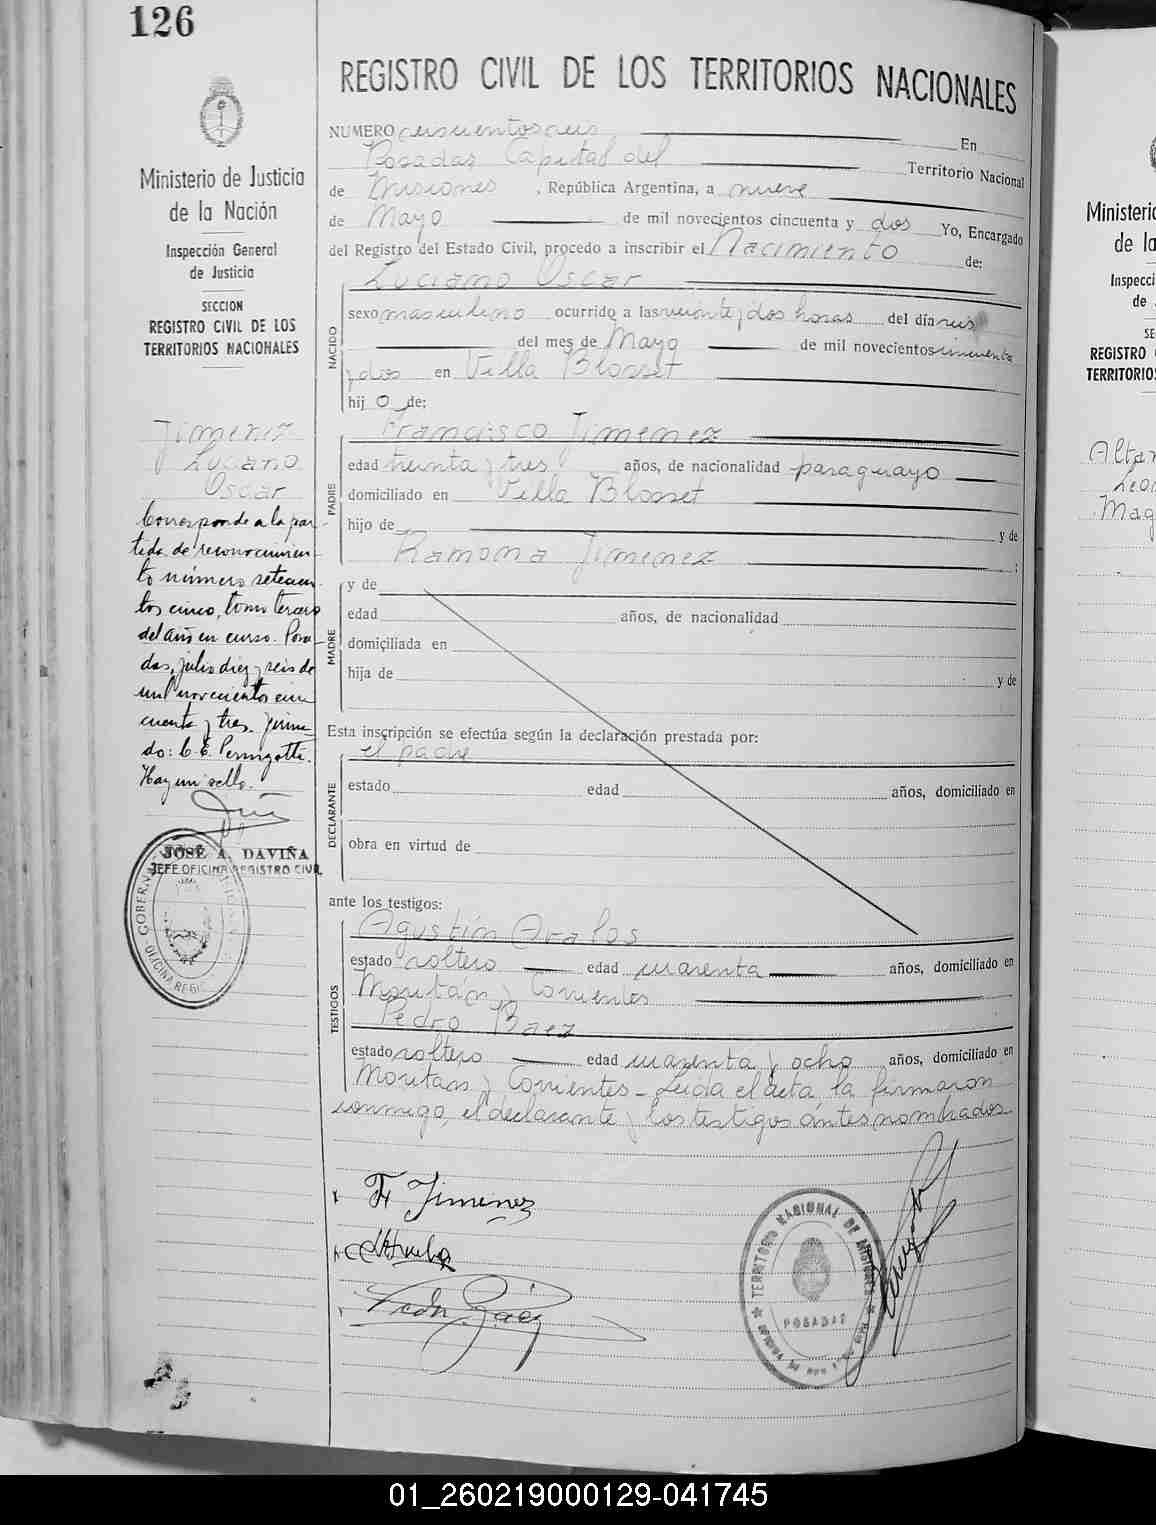 126
Ministerio de Justicia
de la Nación
Inspección General
de Justicia
SECCION
REGISTRO CIVIL DE LOS
TERRITORIOS NACIONALES
Jimenez
Luciano
Oscar
Corresponde a la par-
tida de reconocimien-
to número setecien-
tos cinco, tomo tercero
del año en curso. Posa-
das, julio diez y seis de
mil novecientos cin
cuenta y tres. Firma-
do: C. E.
Hay un sello.
JOSÉ A. DAVIÑA
JEFE OFICINA REGISTRO CIVIL
REGISTRO CIVIL DE LOS TERRITORIOS NACIONALES
NUMERO En
Posadas, Capital del Territorio Nacional
de Misiones, República Argentina, a nueve
de Mayo de mil novecientos cincuenta y dos Yo, Encargado
del Registro del Estado Civil, procedo a inscribir el Nacimiento de:
Luciano Oscar
NACIDO
sexo masculino ocurrido a las veinte y dos horas del día seis
del mes de Mayo de mil novecientos cincuenta
y dos en Villa Blosset
hij o de:
Francisco Jimenez
PADRE
edad treinta y tres años, de nacionalidad paraguayo
domiciliado en Villa Blosset
hijo de y de
Ramona Jimenez ;
MADRE
y de
edad años, de nacionalidad
domiciliada en
hija de y de
Esta inscripción se efectúa según la declaración prestada por:
el padre
DECLARANTE
estado edad años, domiciliado en
obra en virtud de
ante los testigos:
Agustín Avalos
TESTIGOS
estado soltero edad cuarenta años, domiciliado en
y Corrientes
Pedro Baez
estado soltero edad cuarenta y ocho años, domiciliado en
y Corrientes - Leida el acta, la firmaron
conmigo, el declarante y los testigos ántes nombrados.
F Jimenez
Pedro Báez
TERRITORIO NACIONAL DE MISIONES
POSADAS
Ministerio
de la
Inspecci
de
SE
REGISTRO
TERRITORIO
01_260219000129-041745